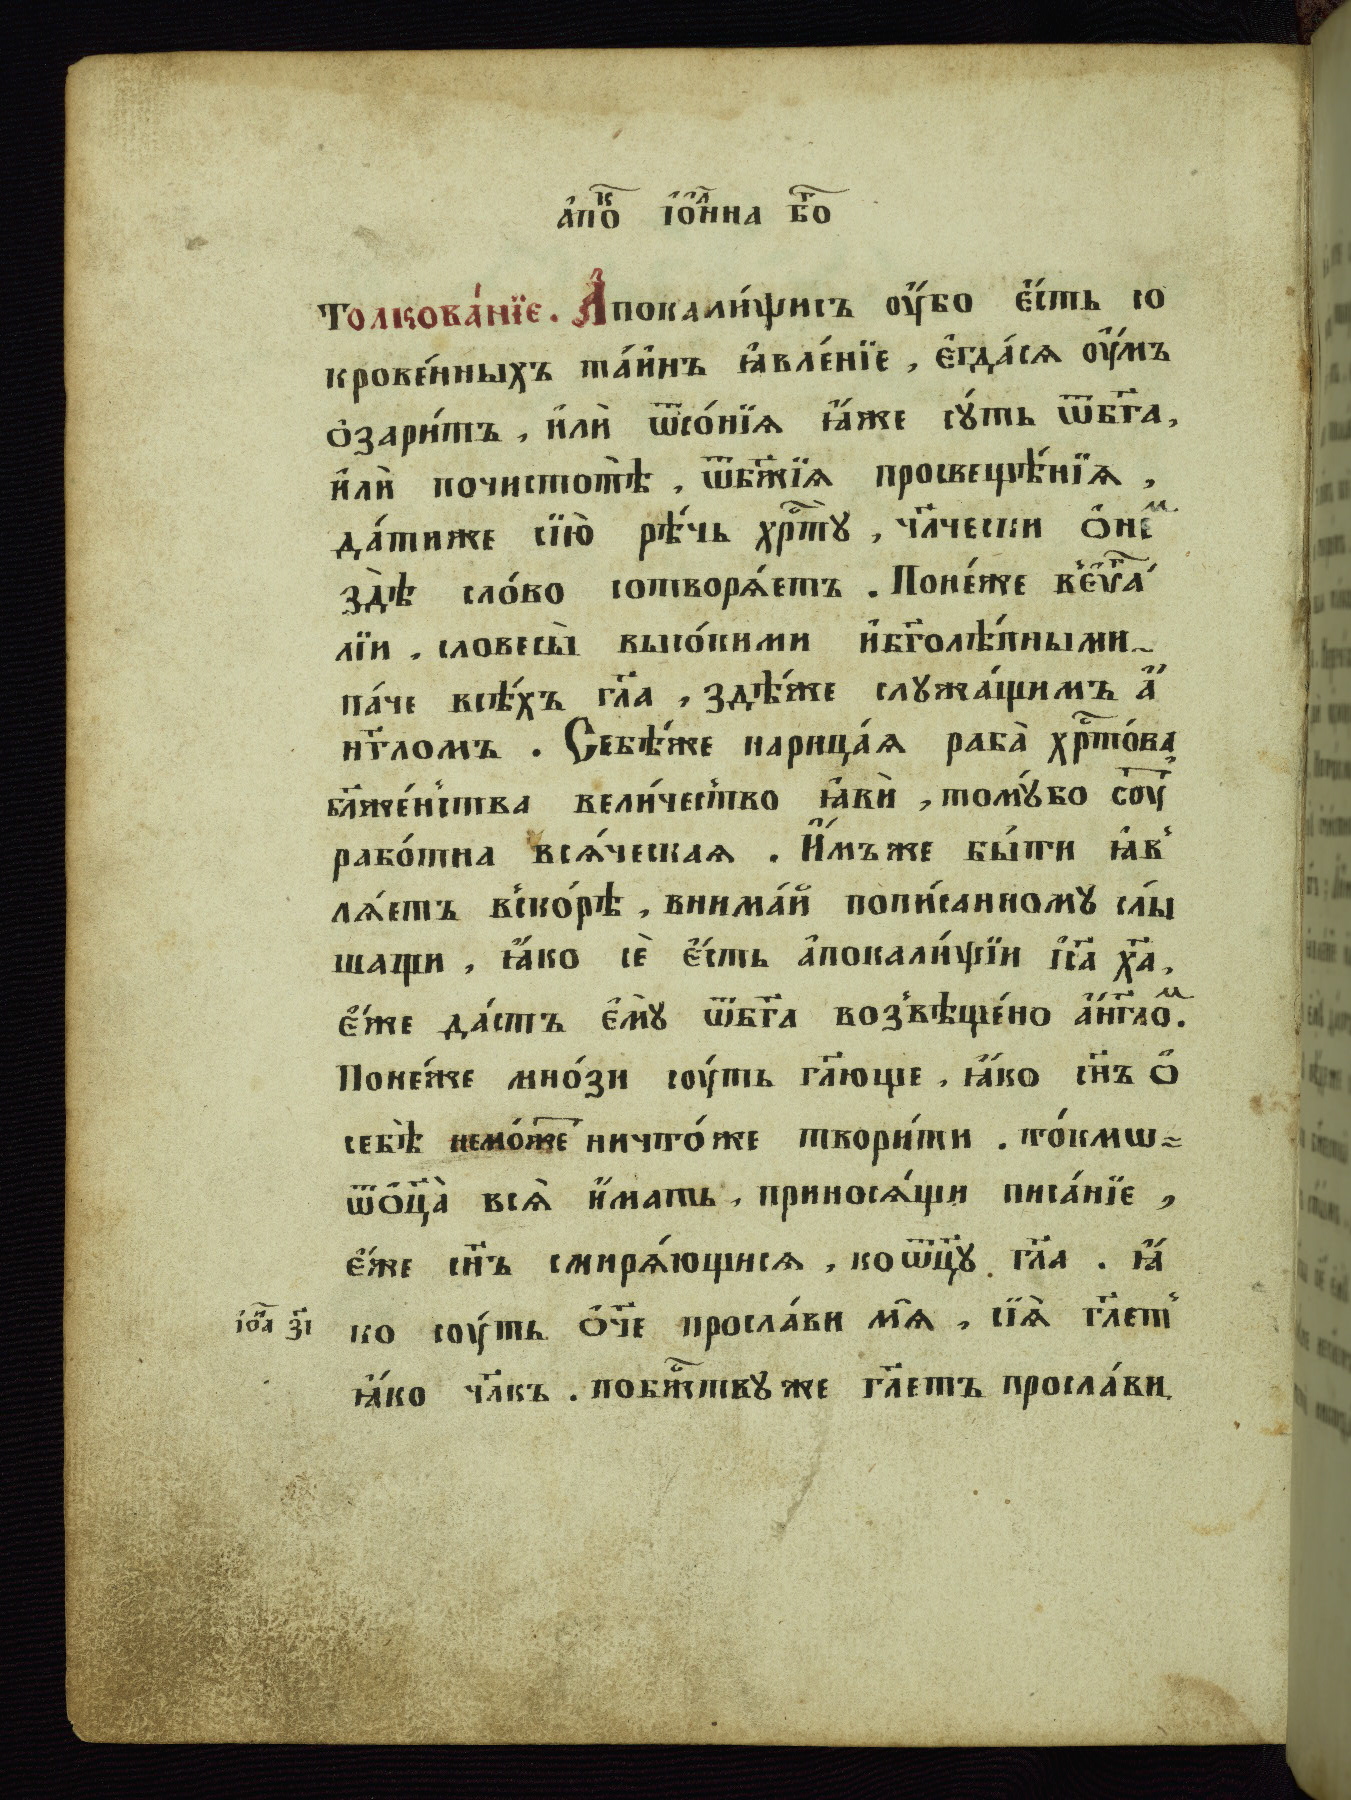 а҆пⷦ҇о і҆ѻ҆́нна бг҃о
Толкова́нїе. А҆покали́ѱисъ ᲂу҆́бо є҆́сть со
крове́нныхъ та́инъ ꙗ҆вле́нїе, є҆гда́сѧ ᲂу҆́мъ
ѻ҆зари́тъ, и҆лѝ ѿсо́нїѧ ꙗ҆́же сꙋ́ть ѿбг҃а,
и҆лѝ почистотѣ̀, ѿбж҃їѧ просвещѣ́нїѧ,
да́тиже сїю̀ рѣ́чь хрⷭ҇тꙋ̀, чл҃чески ѻ҆неⷨ
здѣ̀ сло́во сотворѧ́етъ. Поне́же вє҆ѵⷢ҇а́
лїи, словесы̀ высо́кими и҆бг҃олѣ́пными
па́че всѣ́хъ гл҃а, здѣ́же слꙋжа́щимъ а҆́
нг҃ломъ. Себѣ́же нарица́ѧ раба̀ хрⷭ҇то́ва
бл҃же́нства вели́чество ꙗ҆вѝ, томꙋ́бо соу́
рабо́тна всѧ́ческаѧ. И҆́мъже бы́ти ꙗ҆в
лѧ́етъ вско́рѣ, внима́й попи́санномꙋ слы́
шащи, ꙗ҆́ко сѐ є҆́сть а҆покали́ѱїи і҆с҃а хр҃а,
є҆́же да́стъ є҆мꙋ̀ ѿбг҃а возвѣще́но а҆́нг҃лоⷨ.
Поне́же мно́зи соу́ть гл҃юще, ꙗ҆́ко сн҃ъ ѻ҆
себѣ̀ немо́же ничто́же твори́ти. то́кмѡ
ѿѻ҆ц҃а̀ всѧ̀ и҆́мать, приносѧ́щи писа́нїе,
є҆́же сн҃ъ смирѧ́ющисѧ, коѿц҃ꙋ гл҃а. ꙗ҆́
ко соу́ть ѻ҆́ч҃е просла́ви мѧ̀, сїѧ̀ гл҃ет
і҆ѻⷶ҇ з҃і
ꙗ҆́ко чл҃къ. побжⷭ҇твꙋже гл҃етъ просла́ви